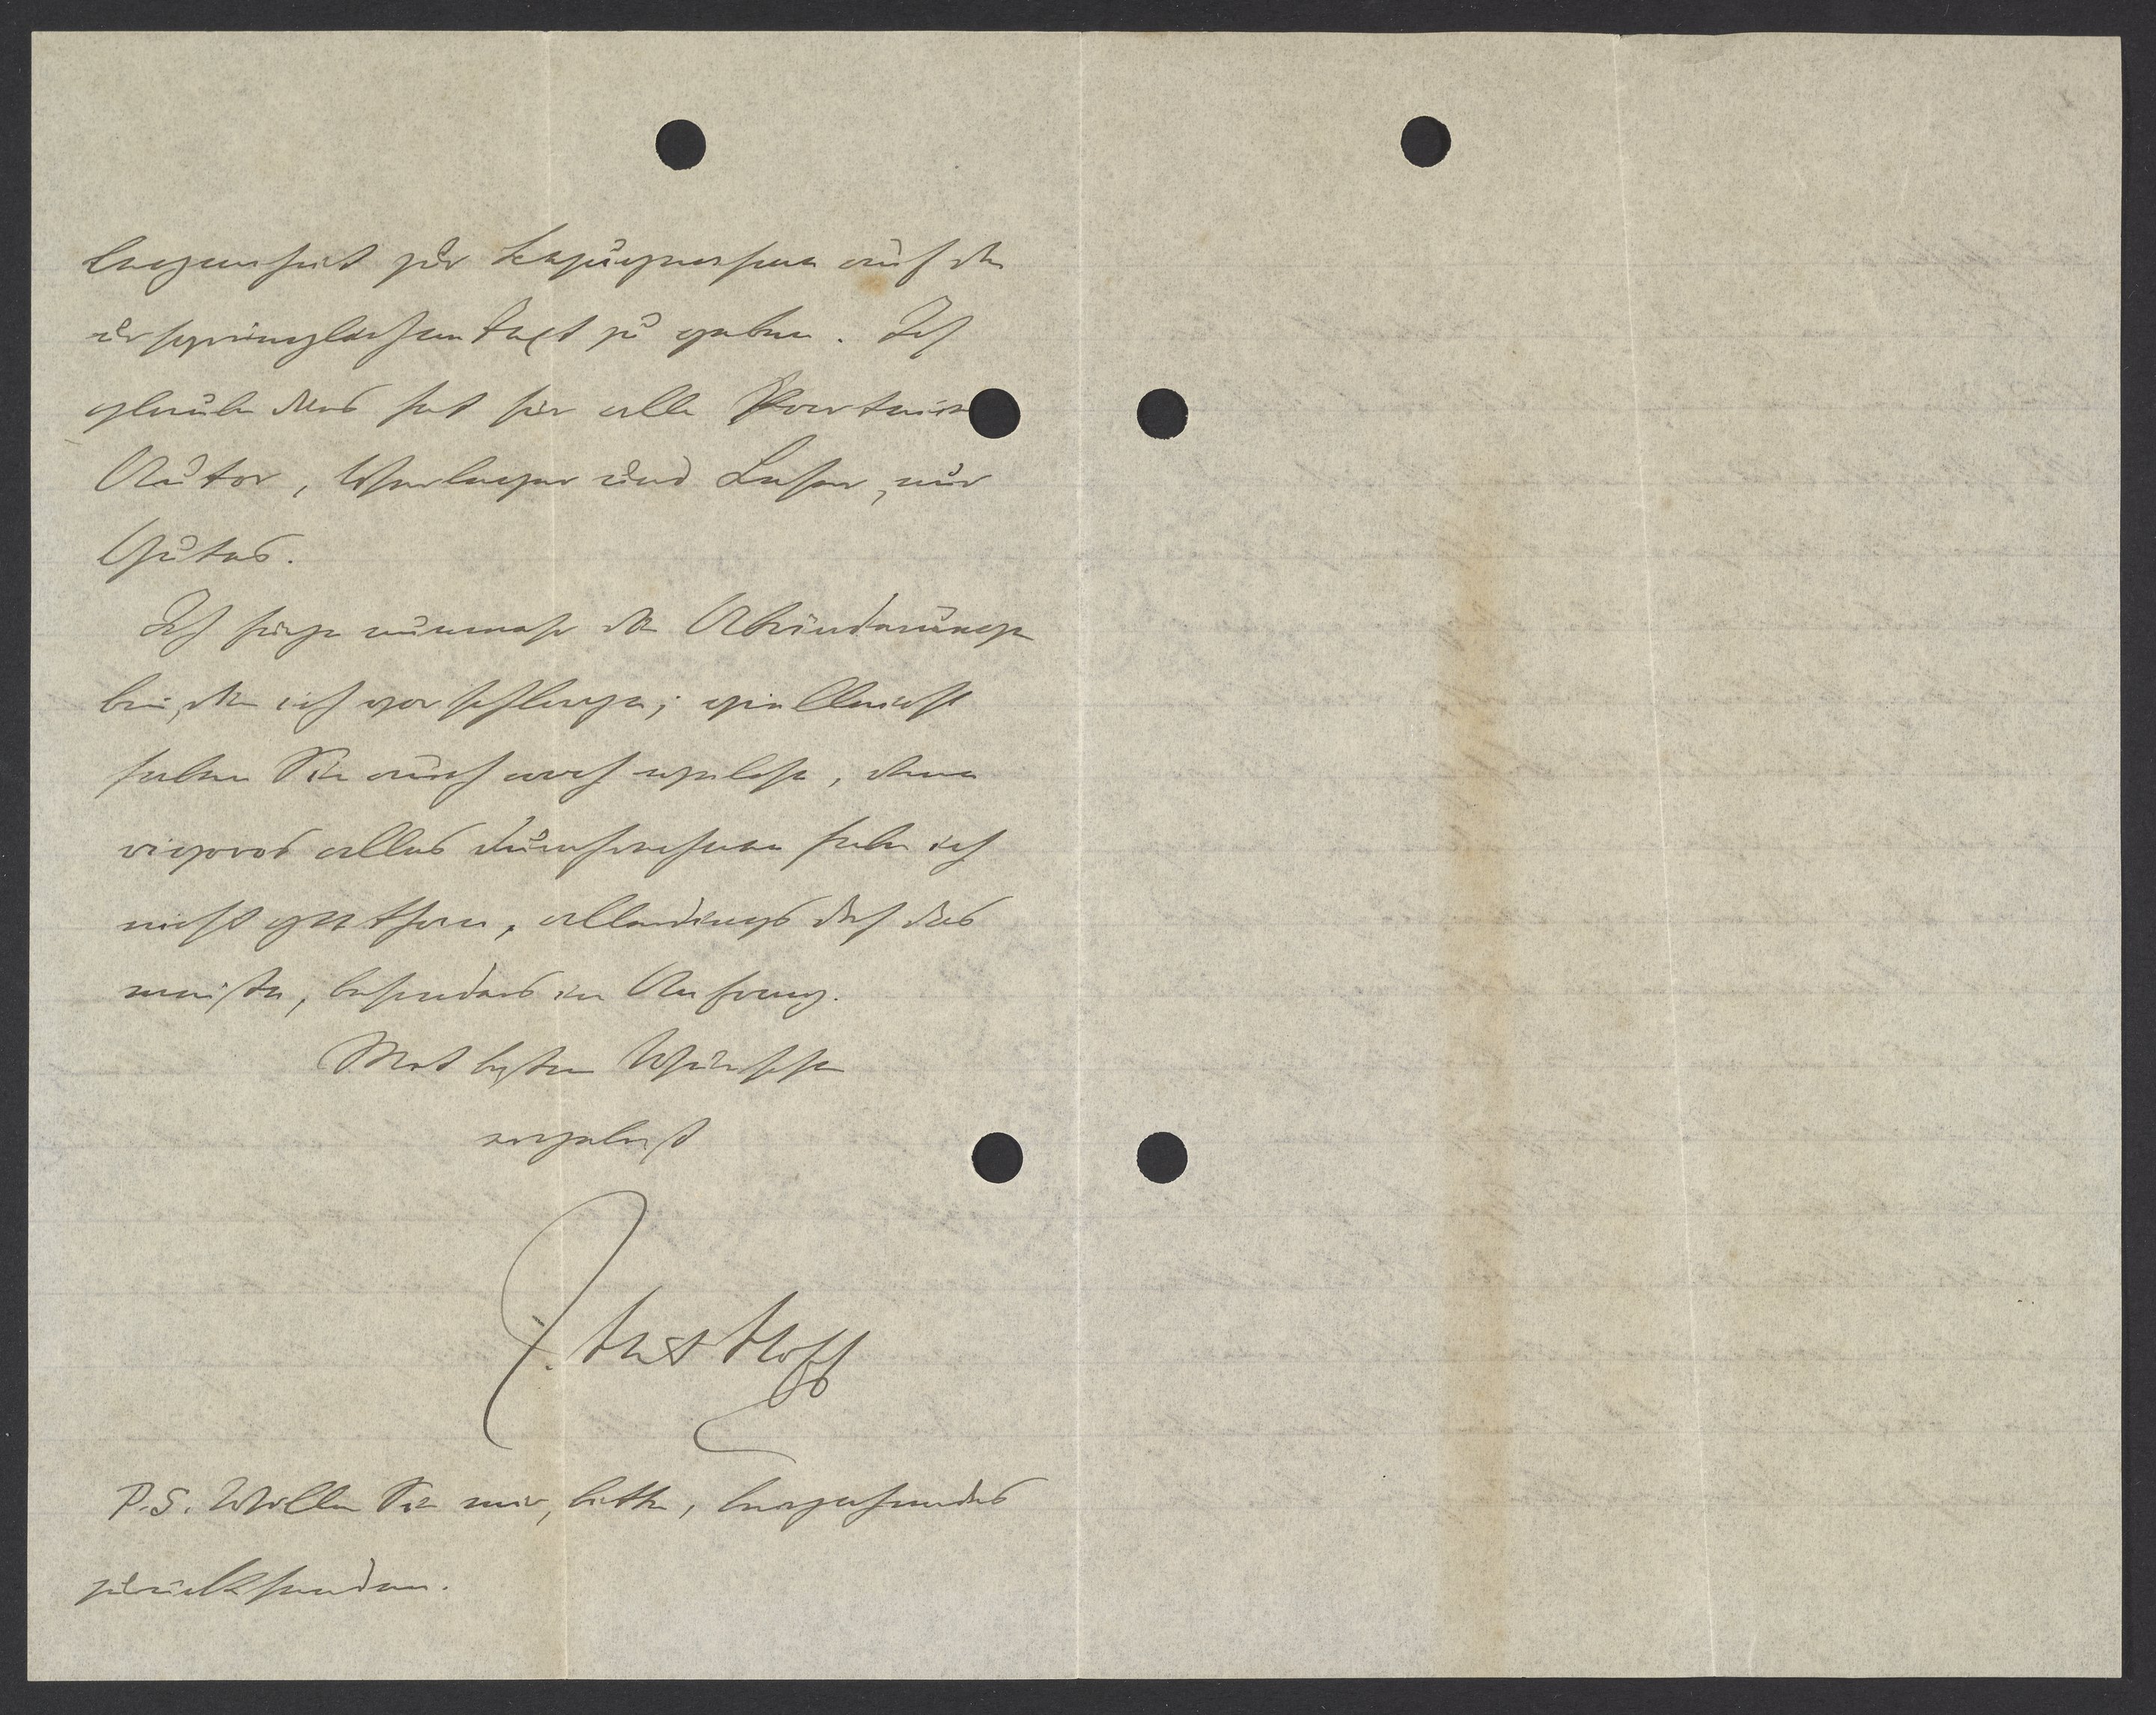 legenheit zur Bezugnahme auf den
ursprünglichen Text zu geben. Ich
glaube das hat für alle Parteien
Autor, Verleger und Leser, nur
Gutes.
Ich füge nunmehr die Abänderungen
bei, die ich vorschlage; vielleicht
haben Sie auch noch welche, denn
rigoros alles durchsehen habe ich
nicht gethan, allerdings doch das
meiste, besonders im Anfang.
Mit besten Wünschen
ergebenst
P.S. Wollen Sie mir, bitte, beigehendes
zurücksenden.